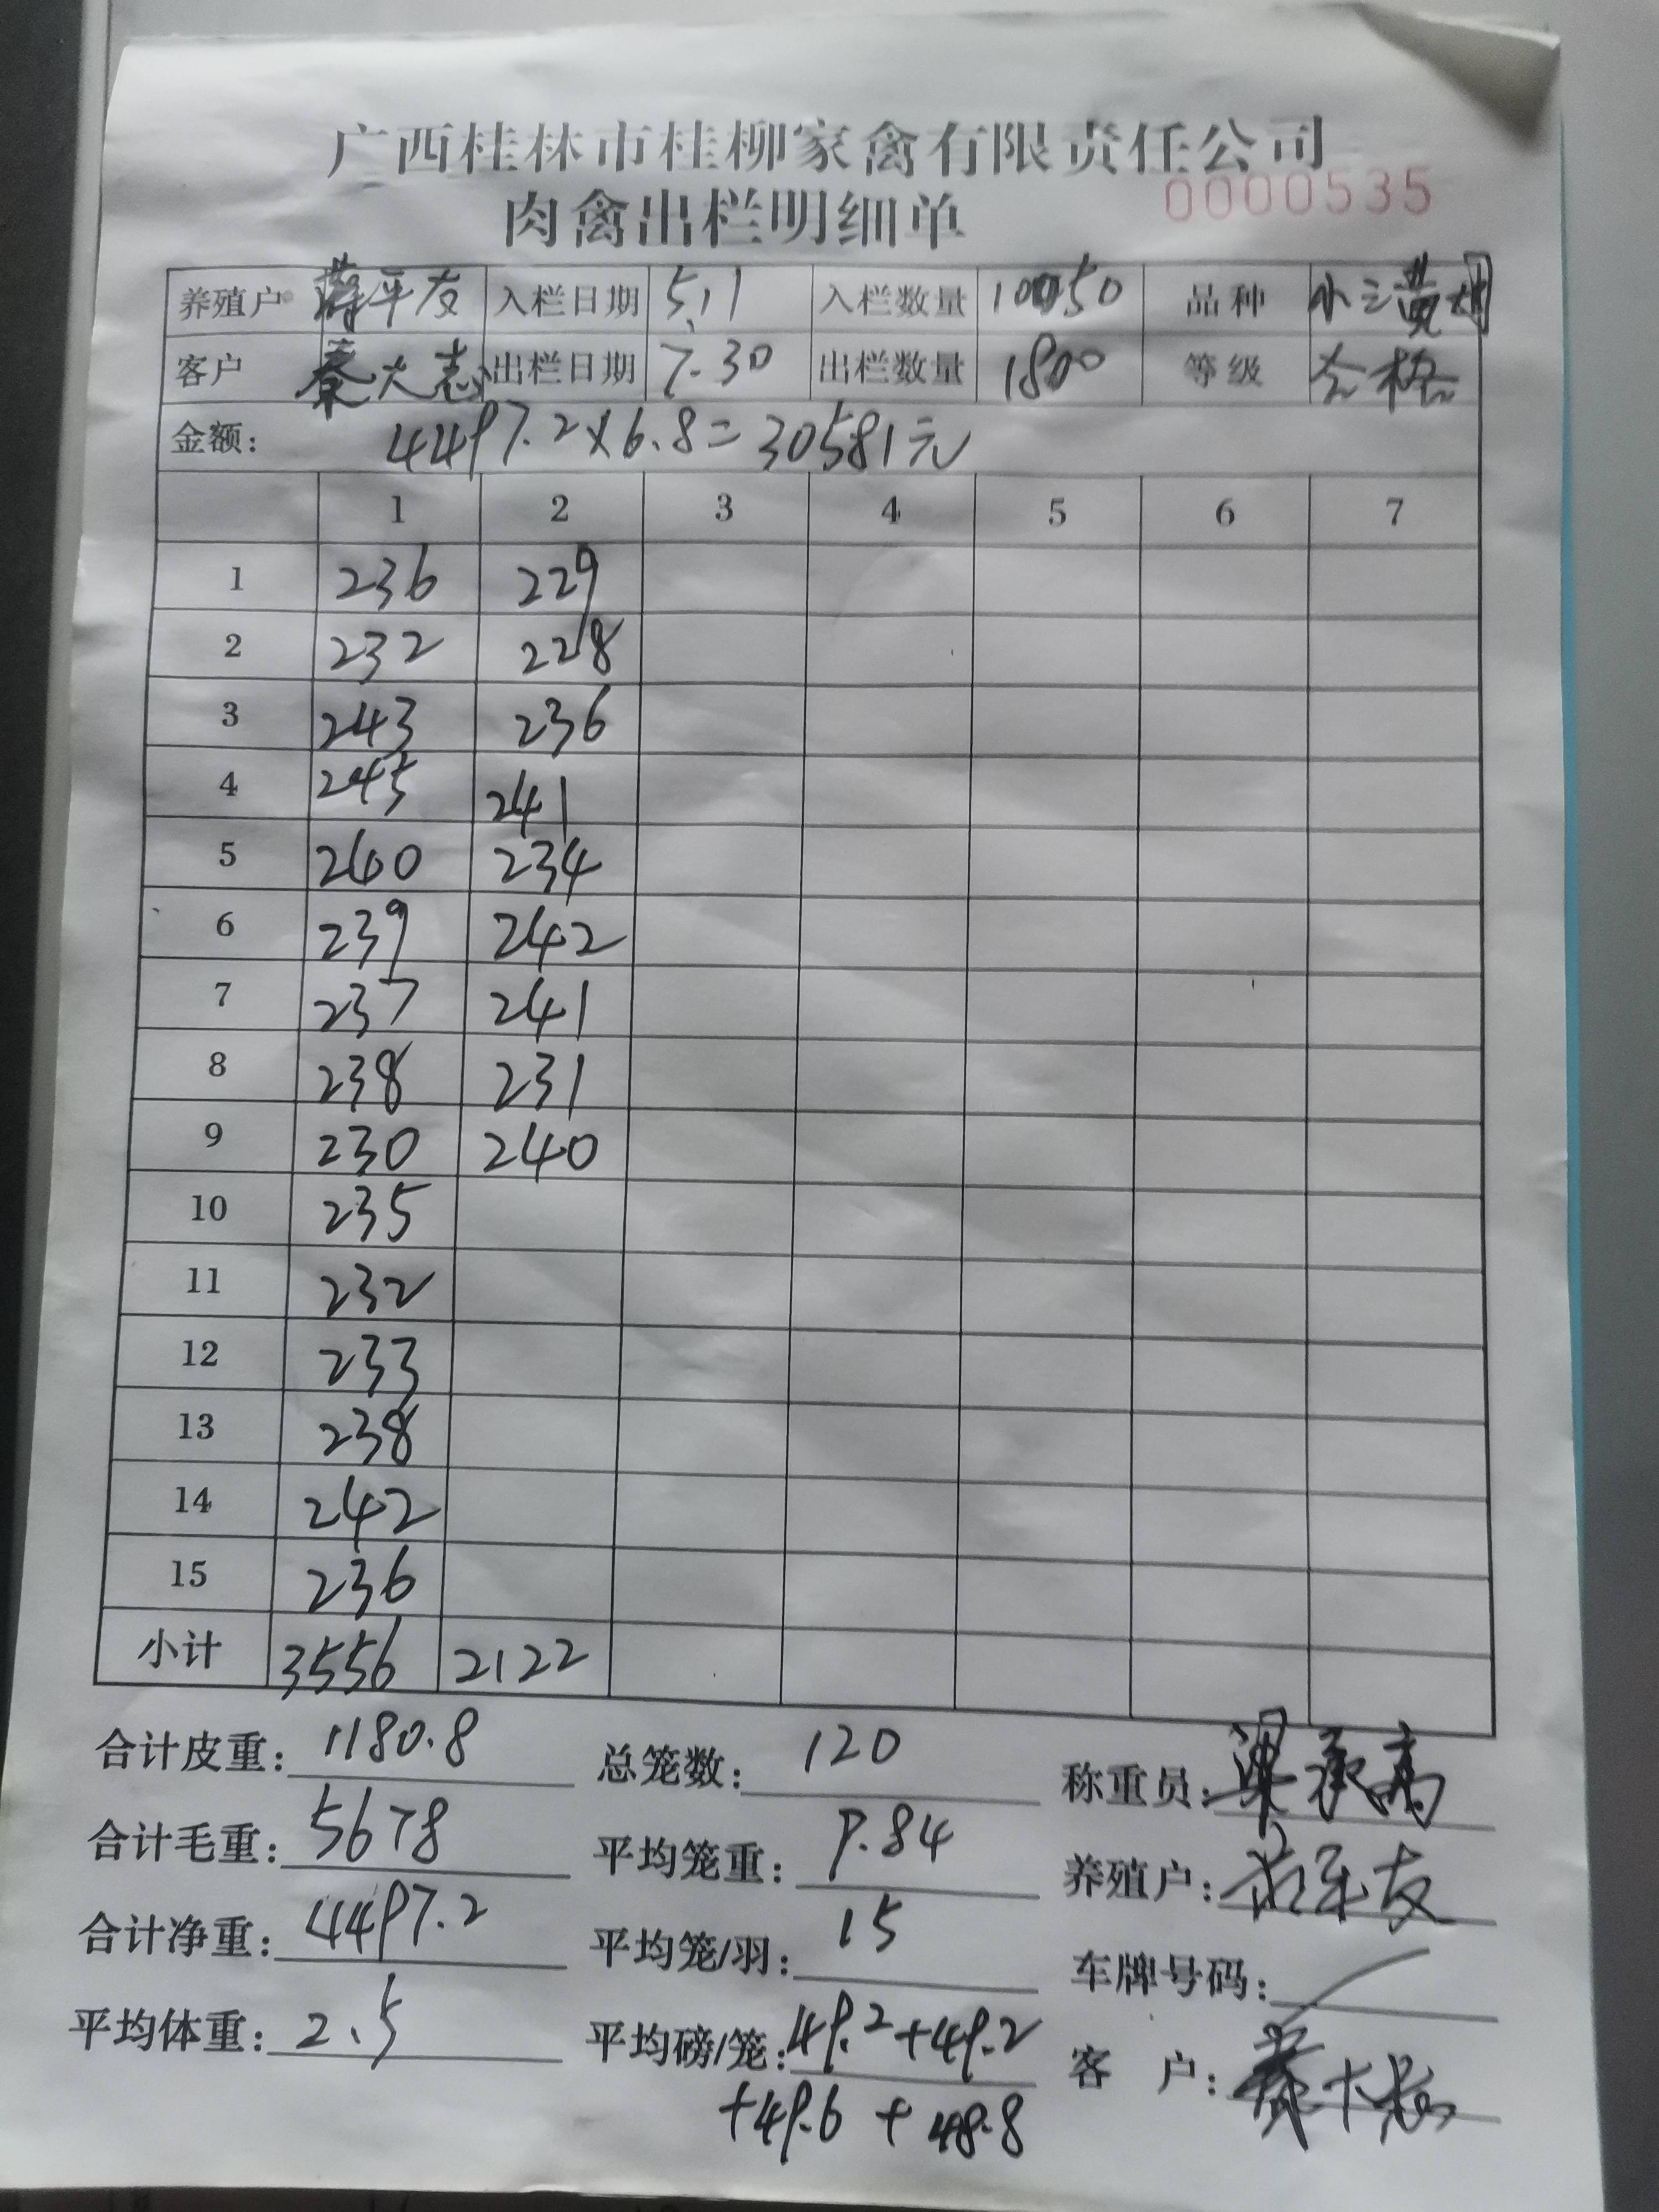 广西桂林市桂柳家禽有限责任公司
肉禽出栏明细单 0000535
养殖户 蒋平友 入栏日期 5.11 入栏数量 10050 品种 小三黄
客户 秦大志 出栏日期 7.30 出栏数量 1800 等级 合格
金额: 4497.2×6.8=30581元
1 2 3 4 5 6 7
1 236 229
2 232 228
3 243 236
4 245 241
5 240 234
6 239 242
7 237 241
8 238 231
9 230 240
10 235
11 232
12 233
13 238
14 242
15 236
小计 3556 2122
合计皮重: 1180.8 总笼数: 120 称重员: 梁承高
合计毛重: 5678 平均笼重: 9.84 养殖户: 蒋平友
合计净重: 4497.2 平均笼/羽: 15 车牌号码: /
平均体重: 2.5 平均磅/笼: 49.2+49.2 客户: 秦大志
+49.6+48.8